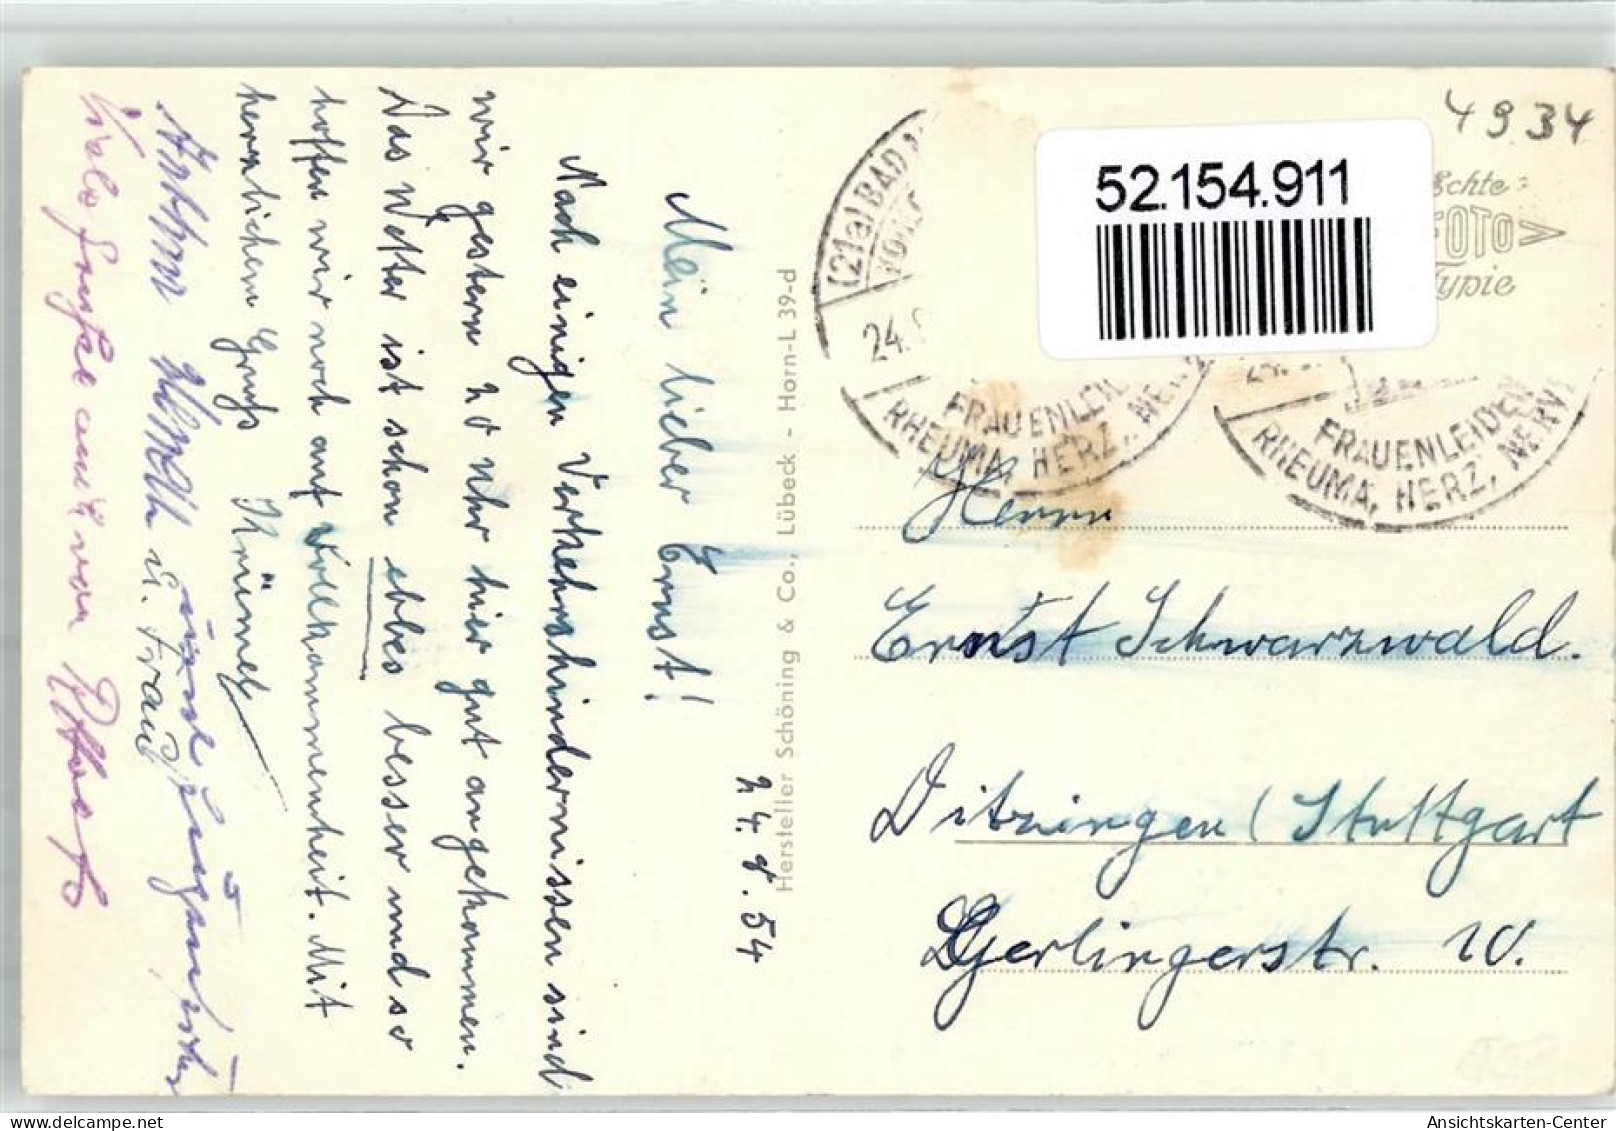 24.8.54
Mein lieber Ernst!
Nach einigen Verkehrshindernissen sind
wir gestern 20 Uhr hier gut angekommen.
Das Wetter ist schon ebbes besser und so
hoffen wir noch auf Vollkommenheit. Mit
herzlichem Gruß
u. Frau
Viele Grüße auch von
Hersteller Schöning & Co., Lübeck - Horn-L 39-d
4934
52.154.911
Echte
FOTO
Typie
(21a) BAD
24.
FRAUENLEIDE
RHEUMA, HERZ, NE
FRAUENLEIDEN
RHEUMA, HERZ, NERV
Herrn
Ernst Schwarzwald.
Ditzingen / Stuttgart
Gerlingerstr. 10.
Ansichtskarten-Center